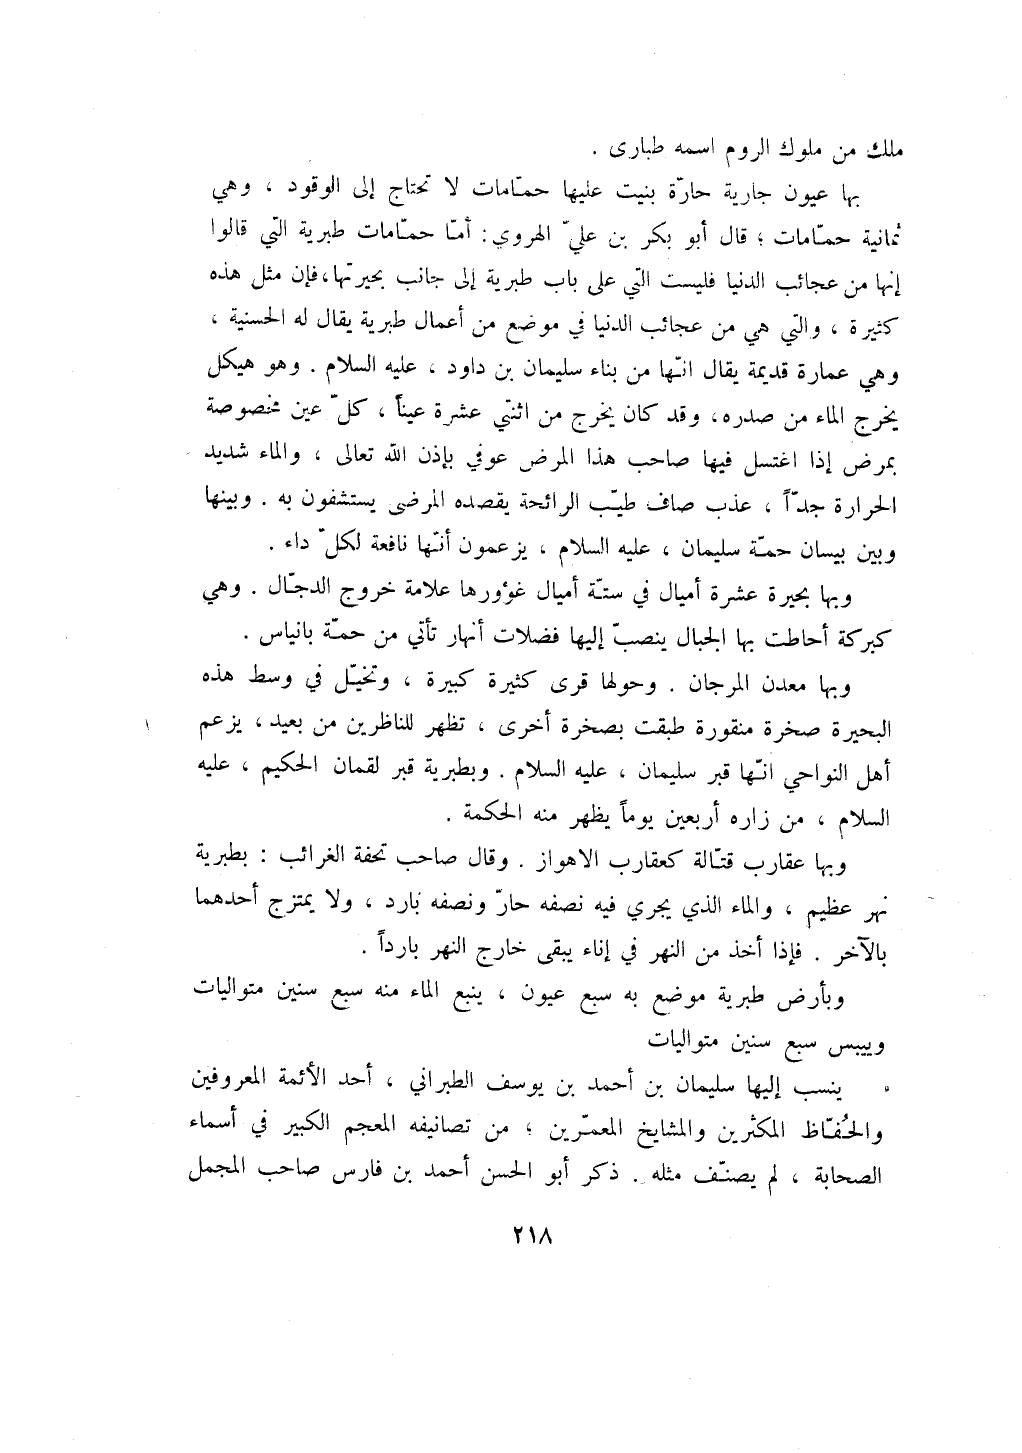 ملك من ملوك الروم اسمه طبارى .
بها عيون جارية حارّة بنيت عليها حمّامات لا تحتاج إلى الوقود ، وهي
ثمانية حمّامات ؛ قال أبو بكر بن عليّ الهروي : أمّا حمّامات طبرية التي قالوا
إنها من عجائب الدنيا فليست التي على باب طبرية إلى جانب بحيرتها ، فإن مثل هذه
كثيرة ، والتي هي من عجائب الدنيا في موضع من أعمال طبرية يقال له الحسنية ،
وهي عمارة قديمة يقال انّها من بناء سليمان بن داود ، عليه السلام . وهو هيكل
يخرج الماء من صدره ، وقد كان يخرج من اثنتي عشرة عيناً ، كلّ عين مخصوصة
بمرض إذا اغتسل فيها صاحب هذا المرض عوفي بإذن الله تعالى ، والماء شديد
الحرارة جدّاً ، عذب صاف طيّب الرائحة يقصده المرضى يستشفون به . وبينها
وبين بيسان حمّة سليمان ، عليه السلام ، يزعمون أنّها نافعة لكلّ داء .
وبها بحيرة عشرة أميال في ستّة أميال غوؤرها علامة خروج الدجّال . وهي
كبركة أحاطت بها الجبال ينصبّ إليها فضلات أنهار تأتي من حمّة بانياس .
وبها معدن المرجان . وحولها قرى كثيرة كبيرة ، وتخيّل في وسط هذه
البحيرة صخرة منقورة طبقت بصخرة أخرى ، تظهر للناظرين من بعيد ، يزعم
أهل النواحي انّها قبر سليمان ، عليه السلام . وبطبرية قبر لقمان الحكيم ، عليه
السلام ، من زاره أربعين يوماً يظهر منه الحكمة .
وبها عقارب قتّالة كعقارب الاهواز . وقال صاحب تحفة الغرائب : بطبرية
نهر عظيم ، والماء الذي يجري فيه نصفه حارّ ونصفه بارد ، ولا يمتزج أحدهما
بالآخر . فإذا أخذ من النهر في إناء يبقى خارج النهر بارداً .
وبأرض طبرية موضع به سبع عيون ، ينبع الماء منه سبع سنين متواليات
وييبس سبع سنين متواليات
ينسب إليها سليمان بن أحمد بن يوسف الطبراني ، أحد الأئمة المعروفين
والحُفّاظ المكثرين والمشايخ المعمّرين ؛ من تصانيفه المعجم الكبير في أسماء
الصحابة ، لم يصنّف مثله . ذكر أبو الحسن أحمد بن فارس صاحب المجمل
٢١٨